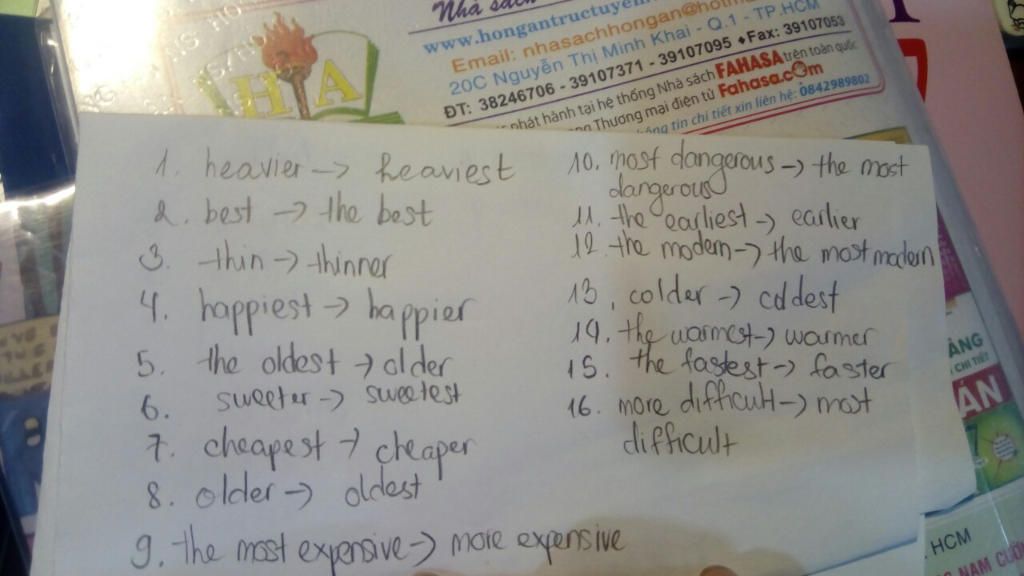 Nhà sách
www.hongantructuyen
Email: nhasachhongan@hotma
20C Nguyễn Thị Minh Khai - Q.1 - TP.HCM
ĐT: 38246706 - 39107371 - 39107095 ♦ Fax: 39107053
phát hành tại hệ thống Nhà sách FAHASA trên toàn quốc
Thương mại điện tử Fahasa.com
thông tin chi tiết xin liên hệ: 0842989802
H A
1. heavier -> heaviest
2. best -> the best
3. thin -> thinner
4. happiest -> happier
5. the oldest -> older
6. sweeter -> sweetest
7. cheapest -> cheaper
8. older -> oldest
9. the most expensive -> more expensive
10. most dangerous -> the most
dangerous
11. the earliest -> earlier
12. the modern -> the most modern
13. colder -> coldest
14. the warmest -> warmer
15. the fastest -> faster
16. more difficult -> most
difficult
CHI TIẾT
ÁN
HCM
NAM CƯỜN